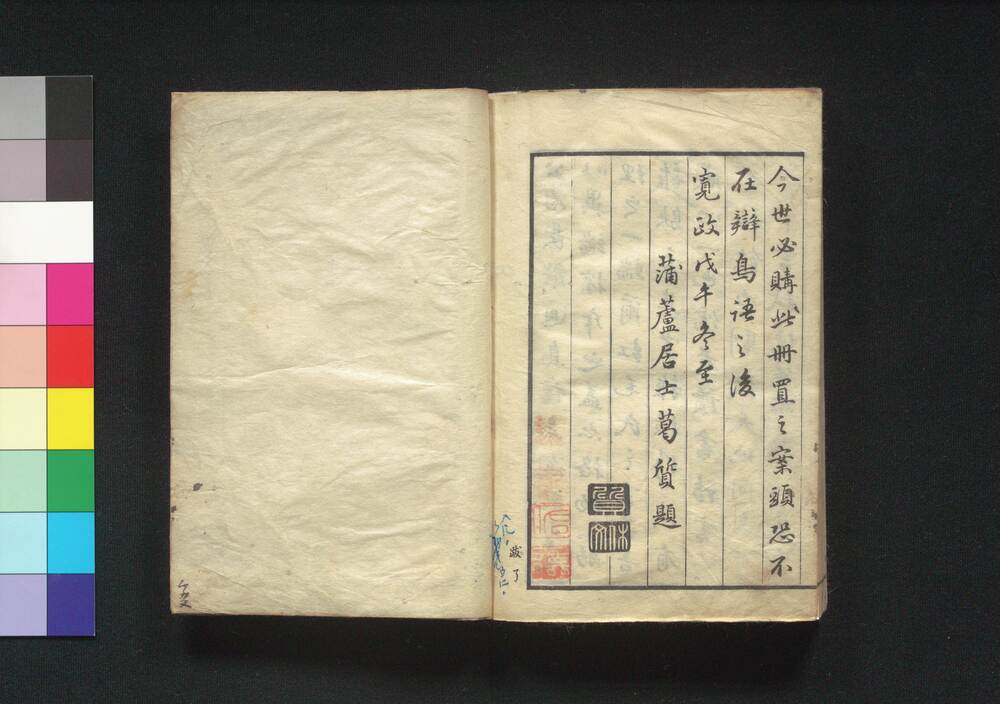 今世必購此冊置之案頭恐不
在辯鳥語之後
寛政戊午冬至
蒲蘆居士葛質題